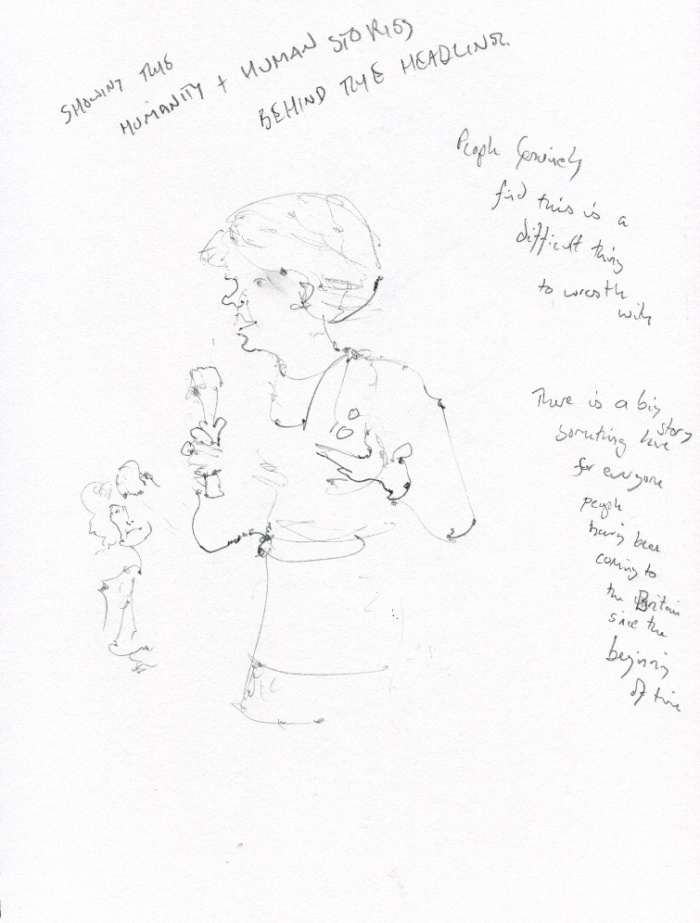 SHOWING THE
HUMANITY + HUMAN STORIES
BEHIND THE HEADLINES.
People Genuinely
find this is a
difficult thing
to wrestle
with
There is a big
story
something here
for everyone
people
having been
coming to
the Britain
since the
beginning
of time